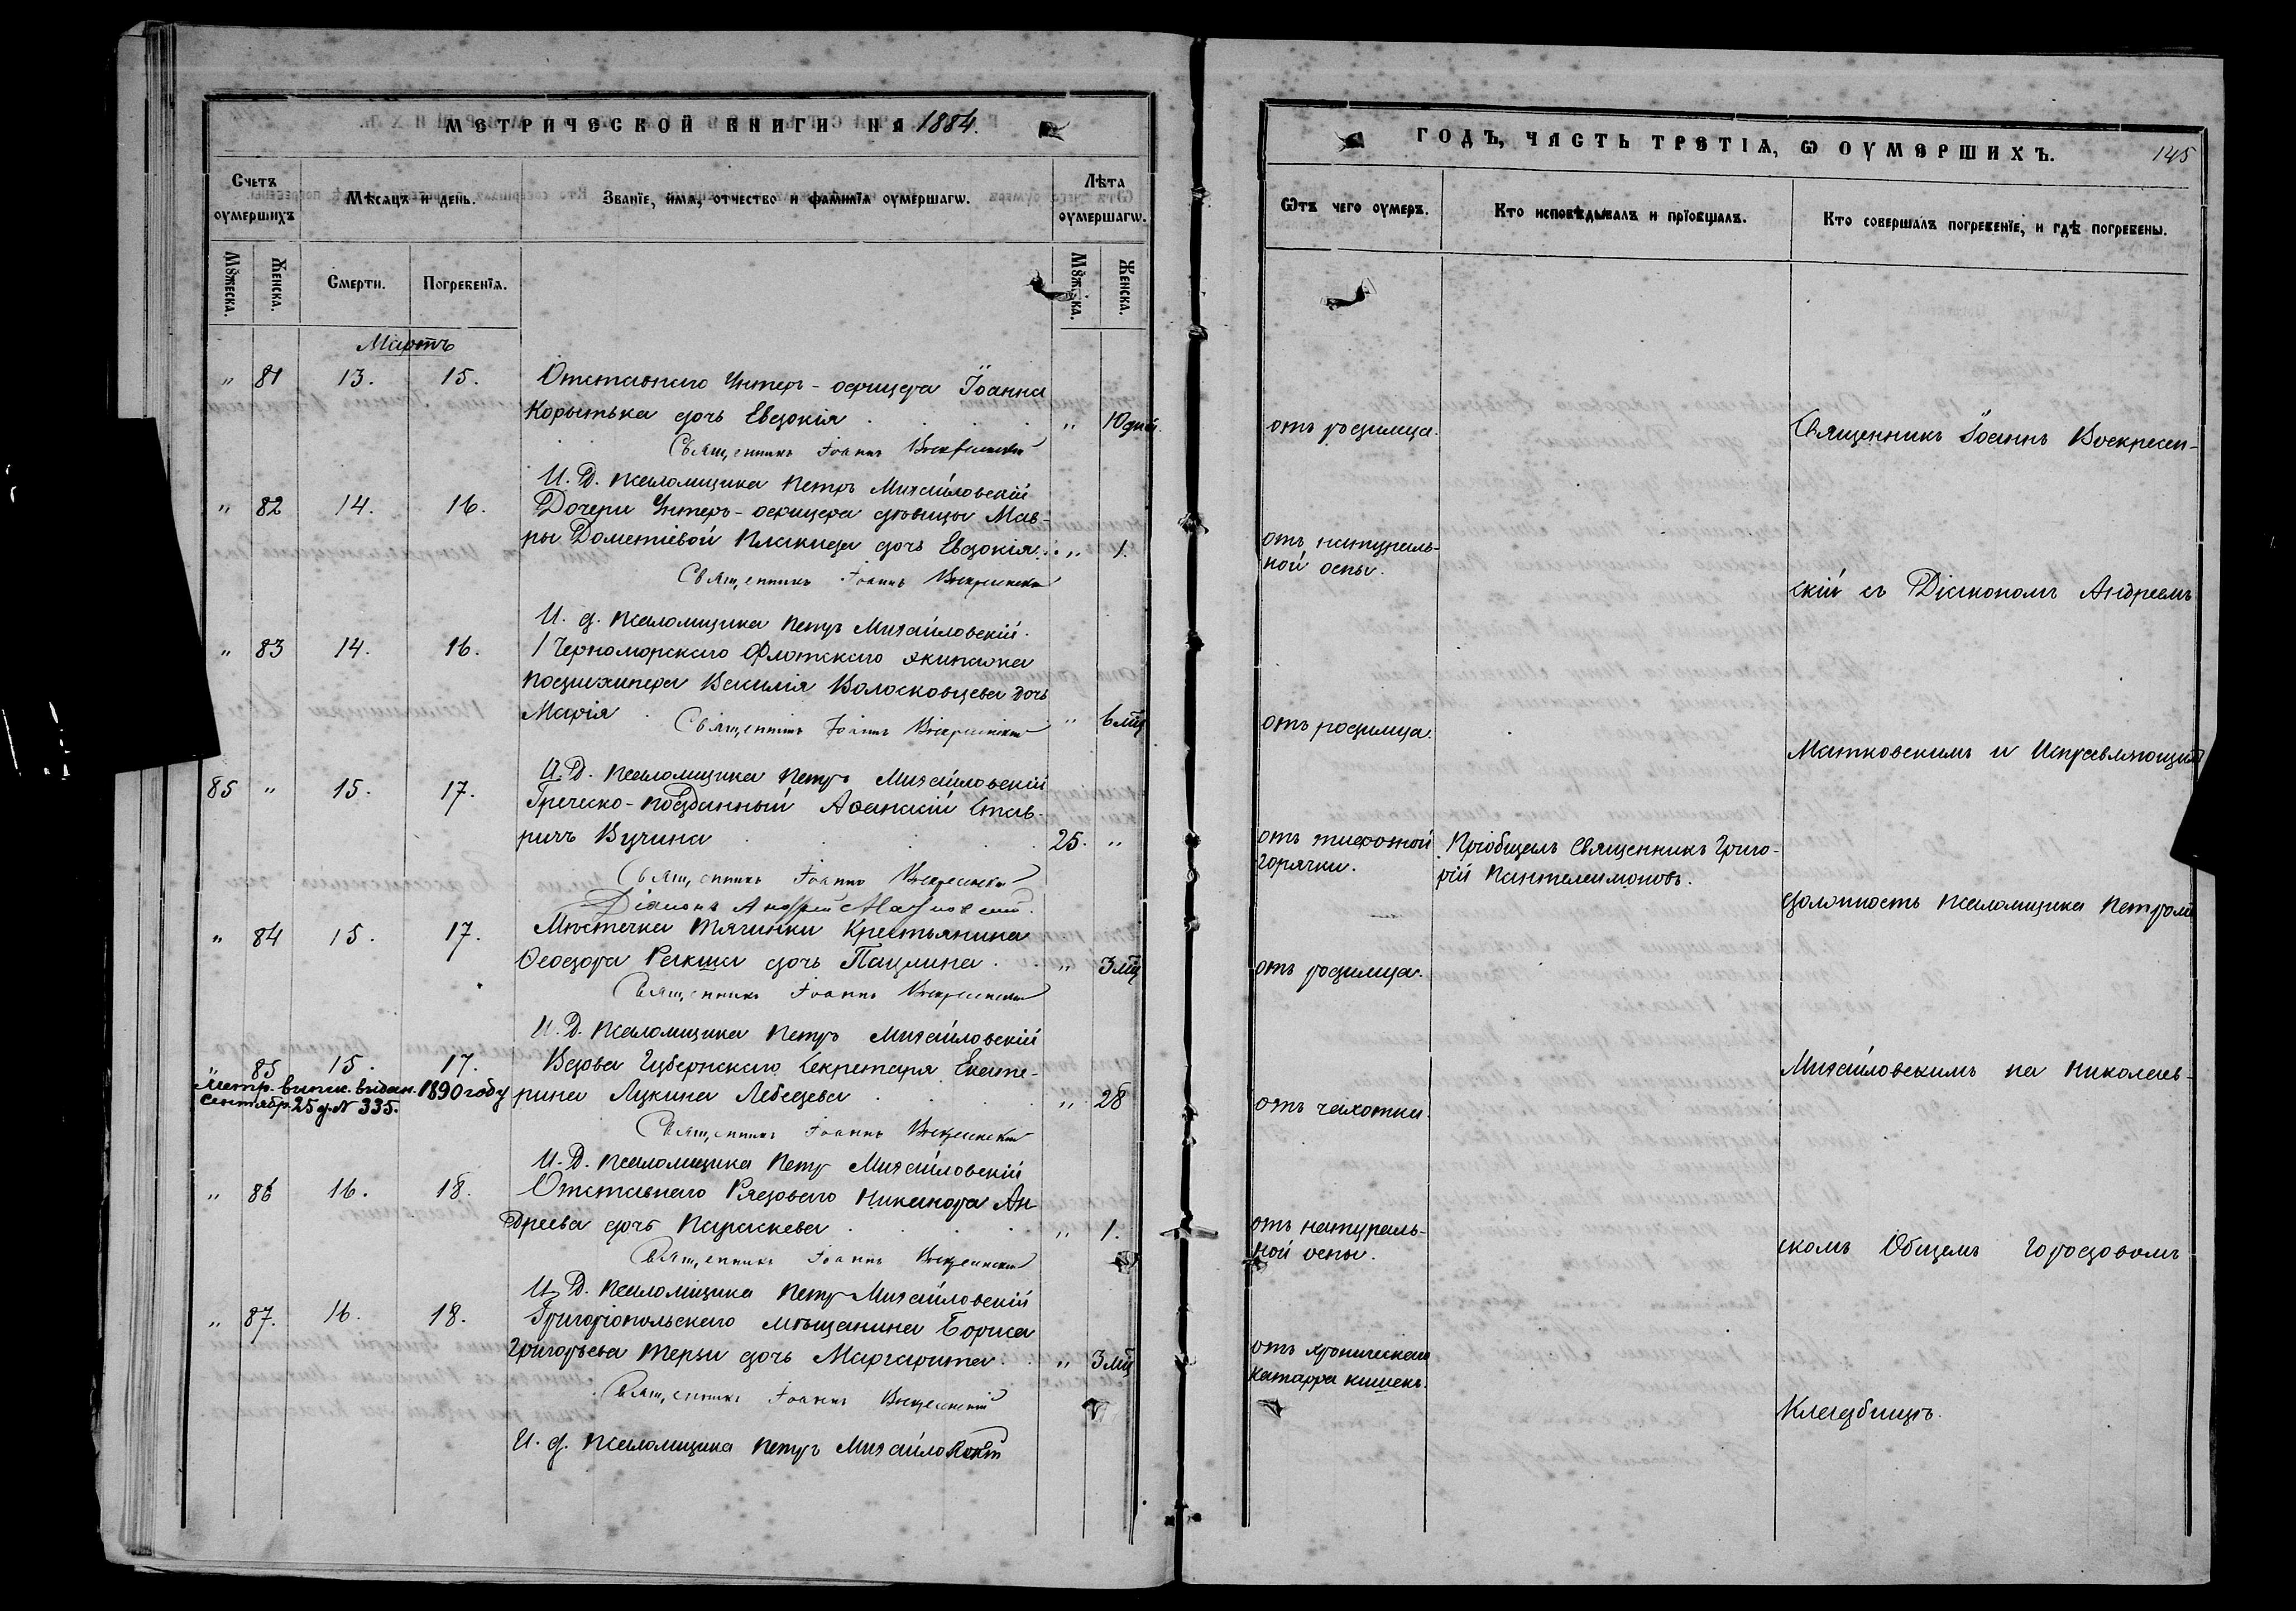 МЕТРИЧЕСКОЙ КНИГИ НА 1884.
Счетъ оумершихъ
Мѣсяцъ и день.
Званїе, имя, отчество и фамилїа оумершагѡ.
Лѣта оумершагѡ.
Мꙋжеска.
Женска.
Смерти.
Погребенїя.
Мꙋжска.
Женска.
Мартъ
" 81 13. 15. Отставнаго Унтеръ-офицера Іоанна
Корытька дочь Евдокія " 10 дней
Священникъ Іоаннъ Воскресенскій
И. Д. псаломщика Петръ Михайловскій
" 82 14. 16. Дочери Унтеръ-офицера дѣвицы Мав-
ры Дометіевой Плакида дочь Евдокія " 1.
Священникъ Іоаннъ Воскресенскій
И. д. псаломщика Петръ Михайловскій.
" 83 14. 16. 1 Черноморскаго Флотскаго экипажа
подшкипера Василія Волосковцева дочь
Марія " 6 мц
Священникъ Іоаннъ Воскресенскій
И.Д. псаломщика Петръ Михайловскій
85 " 15. 17. Греческо-подданный Афанасій Став-
ричъ Вучина 25. "
Священникъ Іоаннъ Воскресенскій
Діаконъ Андрей
" 84 15. 17. Мѣстечка Тягинки Крестьянина
Ѳеодора Рекша дочь Паулина " 3 мц
Священникъ Іоаннъ Воскресенскій
И. Д. псаломщика Петръ Михайловскій
85 15. 17. Вдова Губернскаго Секретаря Екате-
Метр. выпис. выдан. 1890 году
Сентябр. 25 д. № 335.
рина Лукина Лебедева " 28
Священникъ Іоаннъ Воскресенскій
И. Д. псаломщика Петр Михайловскій
" 86 16. 18. Отставнаго Рядоваго Никанора Ан-
дреева дочь Параскева " 1.
Священникъ Іоаннъ Воскресенскій
И. Д. псаломщика Петр Михайловскій
" 87. 16. 18. Григоріопольскаго мѣщанина Бориса
Григорьева Терзи дочь Маргарита " 3 мц
Священникъ Іоаннъ Воскресенскій
И. д. псаломщика Петръ Михайловскій
ГОДЪ, ЧАСТЬ ТРЕТІѦ, Ѡ ОУМЕРШИХЪ.
145
Ѿтъ чего оумеръ.
Кто исповѣдывалъ и прїобщалъ.
Кто совершалъ погребенїе, и гдѣ погребены.
отъ родимца.
Священникъ Іоаннъ Воскресен-
отъ натураль-
ной оспы.
скій съ Діакономъ Андреемъ
отъ родимца.
Матковскимъ и Исправляющимъ
отъ тифозной
горячки.
Пріобщалъ Священникъ Григо-
рій Пантелеимоновъ.
должность псаломщика Петромъ
отъ родимца.
Михайловскимъ на Николаев-
отъ чахотки.
отъ натураль-
ной оспы.
скомъ Общемъ Городовомъ
отъ хроническаго
катарра кишекъ.
Кладбищѣ.